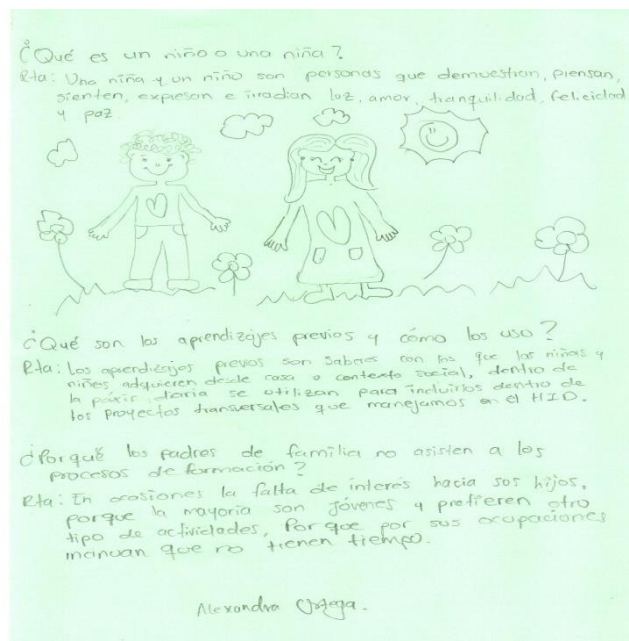 ¿Qué es un niño o una niña?
Rta: Una niña y un niño son personas que demuestran, piensan,
sienten, expresan e irradian luz, amor, tranquilidad, felicidad
y paz.
¿Qué son los aprendizajes previos y cómo los uso?
Rta: Los aprendizajes previos son saberes con los que los niñas y
niños adquieren desde casa o contexto social, dentro de
la diaria se utilizan para incluirlos dentro de
los proyectos transversales que manejamos en el HID.
¿Porqué los padres de familia no asisten a los
procesos de formación?
Rta: En ocasiones la falta de interés hacia sus hijos,
porque la mayoria son jóvenes y prefieren otro
tipo de actividades, Por que por sus ocupaciones
que no tienen tiempo.
Alexandra Ortega.